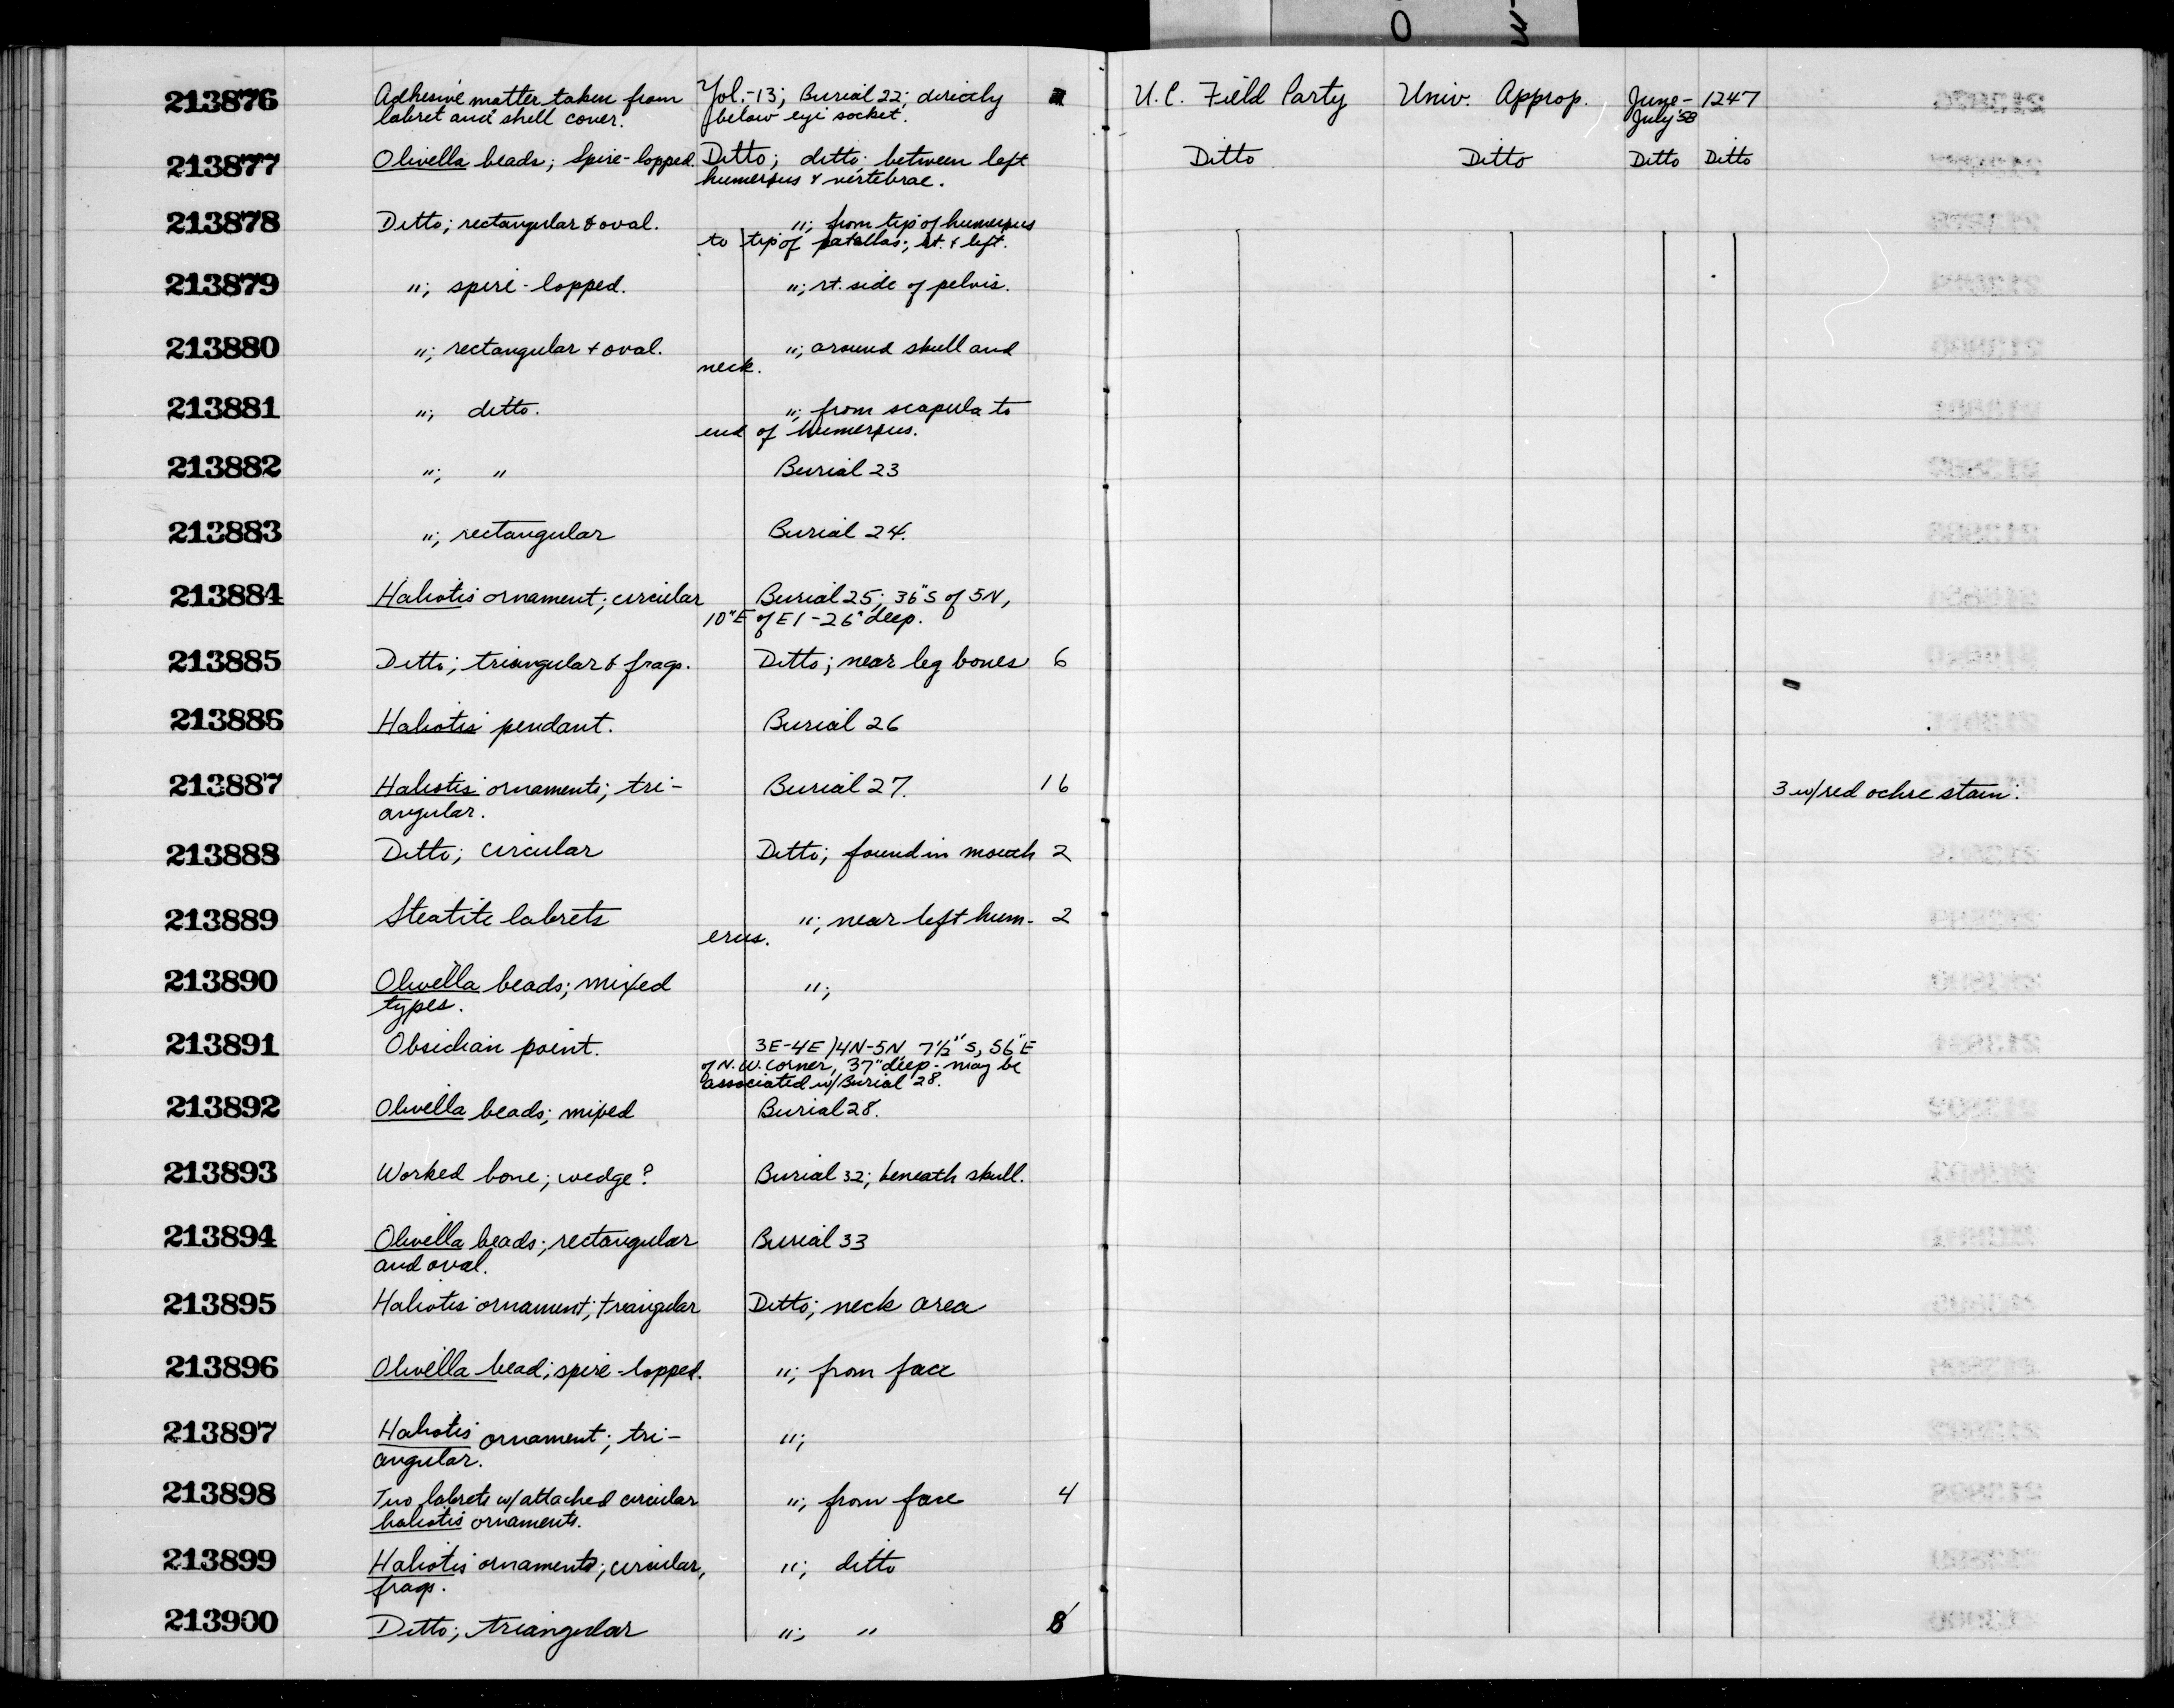 213876 Adhesive matter taken from Yol.-13; Burial 22; directly U.C. Field Party Univ. Approp. June- 1247
labret and shell cover. below eye socket. July '58
213877 Olivella beads; Spire-lopped. Ditto; ditto; between left Ditto Ditto Ditto Ditto
humerus & vertebrae.
213878 Ditto; rectangular & oval. "; from tip of humerus
to tip of patellas; rt. & left.
213879 "; spire-lopped. "; rt. side of pelvis.
213880 "; rectangular + oval. "; around skull and
neck.
213881 "; ditto. "; from scapula to
end of humerus.
213882 "; " Burial 23
213883 "; rectangular Burial 24.
213884 Haliotis ornament; circular Burial 25; 36"S of 5N,
10"E of E1 - 26" deep.
213885 Ditto; triangular & frags. Ditto; near leg bones 6
213886 Haliotis pendant. Burial 26
213887 Haliotis ornaments; tri- Burial 27. 16 3 w/red ochre stain.
angular.
213888 Ditto; circular Ditto; found in mouth 2
213889 Steatite labrets "; near left hum- 2
erus.
213890 Olivella beads; mixed ";
types.
213891 Obsidian point. 3E-4E/4N-5N, 7½" S, 56"E
of N.W. corner, 37" deep - may be
associated w/Burial 28.
213892 Olivella beads; mixed Burial 28.
213893 Worked bone; wedge? Burial 32; beneath skull.
213894 Olivella beads; rectangular Burial 33
and oval.
213895 Haliotis ornament; triangular Ditto; neck area
213896 Olivella bead; spire-lopped. "; from face
213897 Haliotis ornament; tri- ";
angular.
213898 Two labrets w/attached circular "; from face 4
haliotis ornaments.
213899 Haliotis ornaments; circular, "; ditto
frags.
213900 Ditto; triangular "; " 8